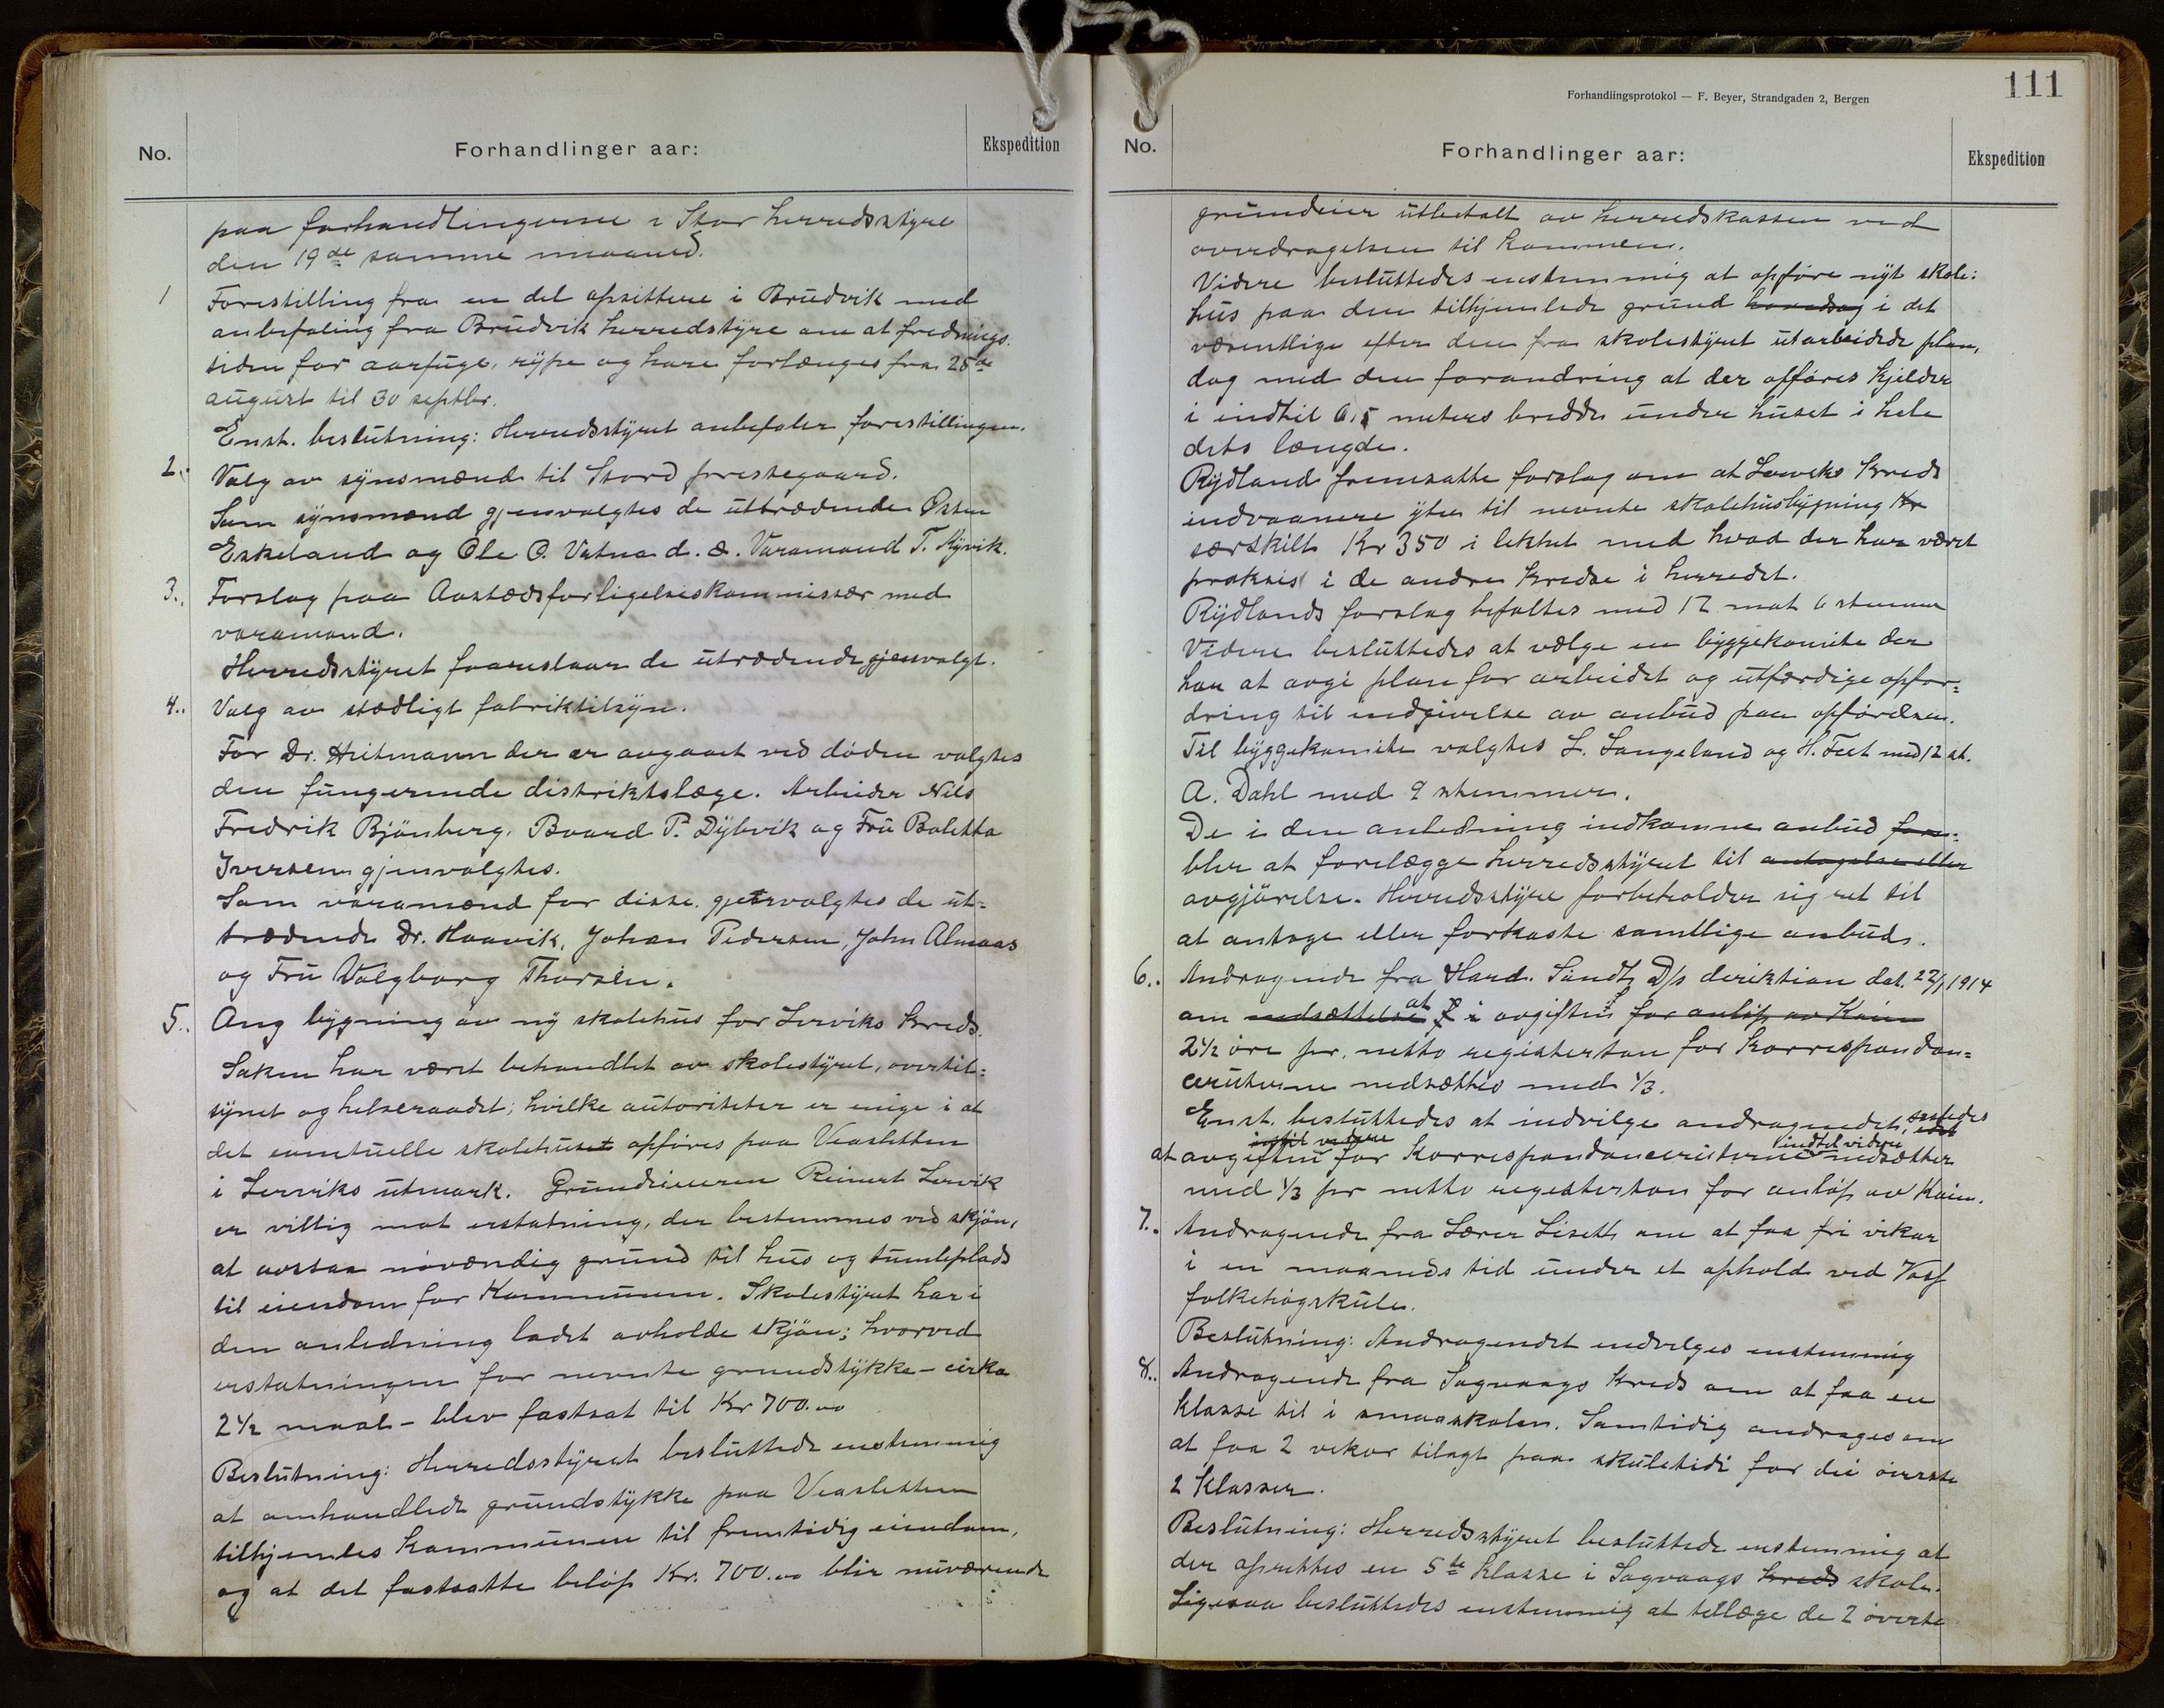 No.
Forhandlinger aar:
Ekspedition
paa forhandlingerne i Stor herredsstyre
den 19de samme maaned.
1 Forestilling fra en del opsittere i Brudvik med
anbefaling fra Brudvik herredstyre om at frednings
tiden for aarfugl, rype og hare forlænges fra 25de
august til 30 septbr.
Enst. beslutning: Herredsstyret anbefaler forestillingen.
2. Valg av synsmænd til Stord prestegaard.
Som synsmænd gjenvalgtes de uttrædende Østen
Eskeland og Ole O. Vatna d. æ. Varamand T. Kyvik.
3. Forslag paa Aastedsforligelseskommissær med
varamand.
Herredsstyret foareslaar de utrædende gjenvalgt.
4. Valg av stedligt fabriktilsyn.
For Dr. Heitmann der er avgaaet ved døden valgtes
den fungerende distriktslæge. Arbeider Nils
Fredrik Bjönberg, Baard P. Dybvik og Fru Boletta
Iversen gjenvalgtes.
Som varamænd for disse gjenvalgtes de ut=
trædende Dr. Haavik, Johan Pedersen, John Almaas
og Fru Valgborg Thorsen.
5. Ang bygning av ny skolehus for Lerviks kreds.
Saken har været behandlet av skolestyret, overtil=
synet og helseraadet; hvilke autoriteter er enige i at
det eventuelle skolehuset opføres paa Veasletten
i Lerviks utmark. Grundeieren Reinert Lervik
er villig mot erstatning, der bestemmes ved skjön,
at avstaa nøvændig grund til hus og tumleplads
til eiendom for Kommunen. Skolestyret har i
den anledning ladet avholde skjön; hvorved
erstatningen for nevnte grundstykke - cirka
2½ maal - blev fastsat til Kr 700.00
Beslutning: Herredsstyret besluttede enstemmig
at omhandlede grundstykke paa Veasletten
tilhjemles Kommunen til fremtidig eiendom,
og at det fastsatte beløp Kr. 700.00 blir nuværende
Forhandlingsprotokol — F. Beyer, Strandgaden 2, Bergen
111
No.
Forhandlinger aar:
Ekspedition
grundeier utbetalt av herredskassen ved
overdragelsen til kommunen.
Videre besluttedes enstemmig at opføre nyt skole:
hus paa den tilhjemlede grund i det
væsentlige efter den fra skolestyret utarbeidede plan,
dog med den forandring at der opføres kjelder
i indtil 6,5 meters bredde under huset i hele
dets længde.
Rydland fremsatte forslag om at Lerviks kreds
indvaanere yter til nevnte skolehusbygning Kr
særskilt Kr 350 i likhet med hvad der har været
praksis i de andre kredse i herredet.
Rydlands forslag befaltes med 12 mot 6 stemmer
Videre besluttedes at vælge en byggekomite der
har at avgi plan for arbeidet og utfærdige opfor=
dring til indgivelse av anbud paa opførelsen.
Til byggekomite valgtes L. Langeland og H. Feet med 12 st.
A. Dahl med 9 stemmer.
De i den anledning indkomne anbud fore=
blir at forelægge herredsstyret til antagelse eller
avgjörelse. Herredsstyre forbeholder sig ret til
at antage eller forkaste samtlige anbud.
6. Andragende fra Hard. Sundh. D/s direktion dat. 22/1 1914
om nedsættelse at i avgiften for anløp av Kaien
2½ øre pr. netto registerton for korrespondan=
ceruterne nedsættes med 1/3.
Enst. besluttedes at indvilge andragendet, saaledes
indtil videre indtil videre
at avgiften for Korrespondanceruterne nedsættes
med 1/3 pr netto registerton for anløp av Kaien.
7. Andragende fra Lærer Liseth om at faa fri vikar
i en maaneds tid under et ophold ved Voss
folkehøgskule.
Beslutning: Andragendet indvilges enstemmig
8. Andragende fra Sagvaags kreds om at faa en
klasse til i smaaskolen. Samtidig andrages om
at faa 2 vekor tilagt paa skuletidi for dei øverste
2 Klasser.
Beslutning: Herredsstyret besluttede enstemmig at
der oprettes en 5te klasse i Sagvaags kreds skole.
Ligesaa besluttedes enstemmig at tillæge de 2 øverste